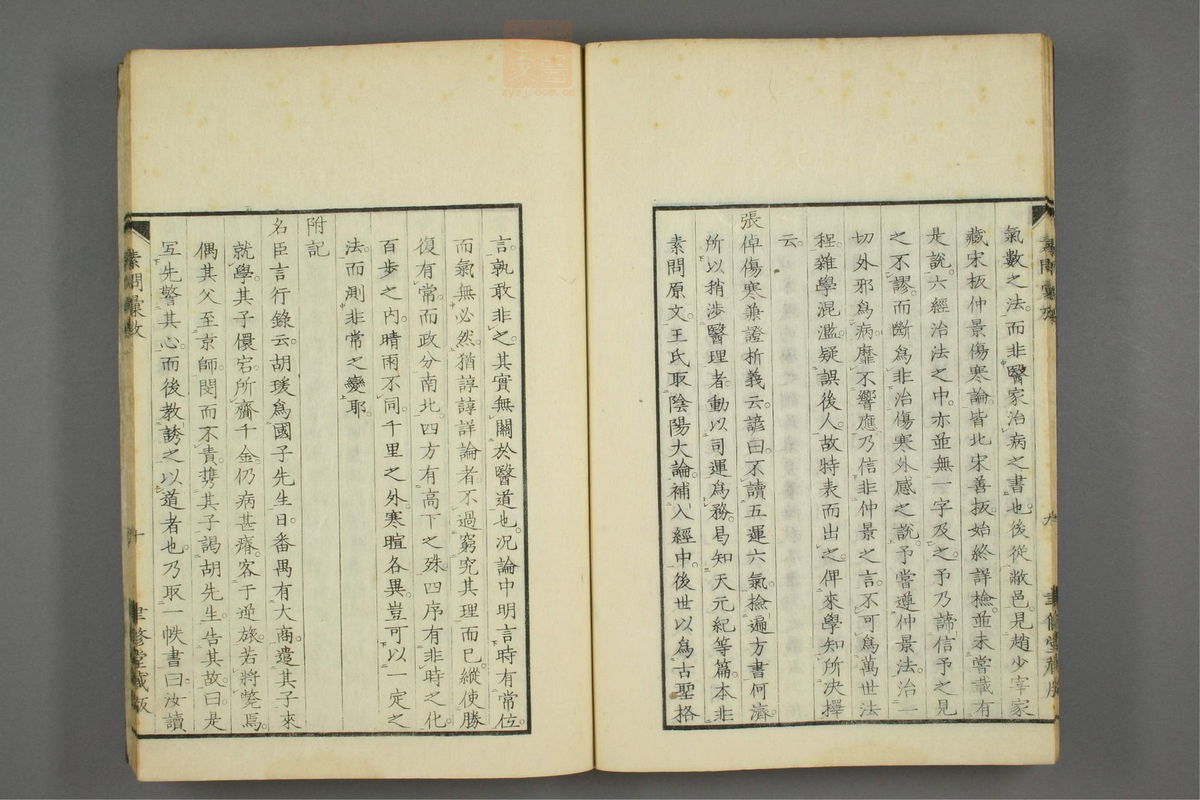 氣數之法。而非醫家治病之書也。後從敝邑。見趙少宰家
藏宋板仲景傷寒論。皆北宋善板。始終詳檢。並未嘗載有
是說。六經治法之中。亦並無一字及之。予乃諦信予之見
之不謬。而斷爲非治傷寒外感之說。予嘗遵仲景法。治一
切外邪爲病。靡不響應。乃信非仲景之言。不可爲萬世法
程。雜學混濫。疑誤後人。故特表而出之。俾來學知所決擇
云。
張倬傷寒兼證析義云。諺曰。不讀五運六氣。撿遍方書何濟。
所以稍涉醫理者。動以司運爲務。曷知天元紀等篇。本非
素問原文。王氏取陰陽大論。補入經中。後世以爲古聖格
言。孰敢非之。其實無關於醫道也。況論中明言。時有常位。
而氣無必然。猶諄諄詳論者。不過窮究其理而已。縱使勝
復有常。而政分南北。四方有高下之殊。四序有非時之化。
百步之內。晴雨不同。千里之外。寒暄各異。豈可以一定之
法。而測非常之變耶。
附記
名臣言行錄云。胡瑗爲國子先生日。番禺有大商。遣其子來
就學。其子儇宕。所齎千金。仍病甚瘠。客于逆旅。若將斃焉。
偶其父至京師。閔而不責。携其子謁胡先生。告其故。曰是
宜先警其心。而後教誘之以道者也。乃取一帙書曰。汝讀
素問彙攷
十
聿修堂藏板
九
聿修堂藏板